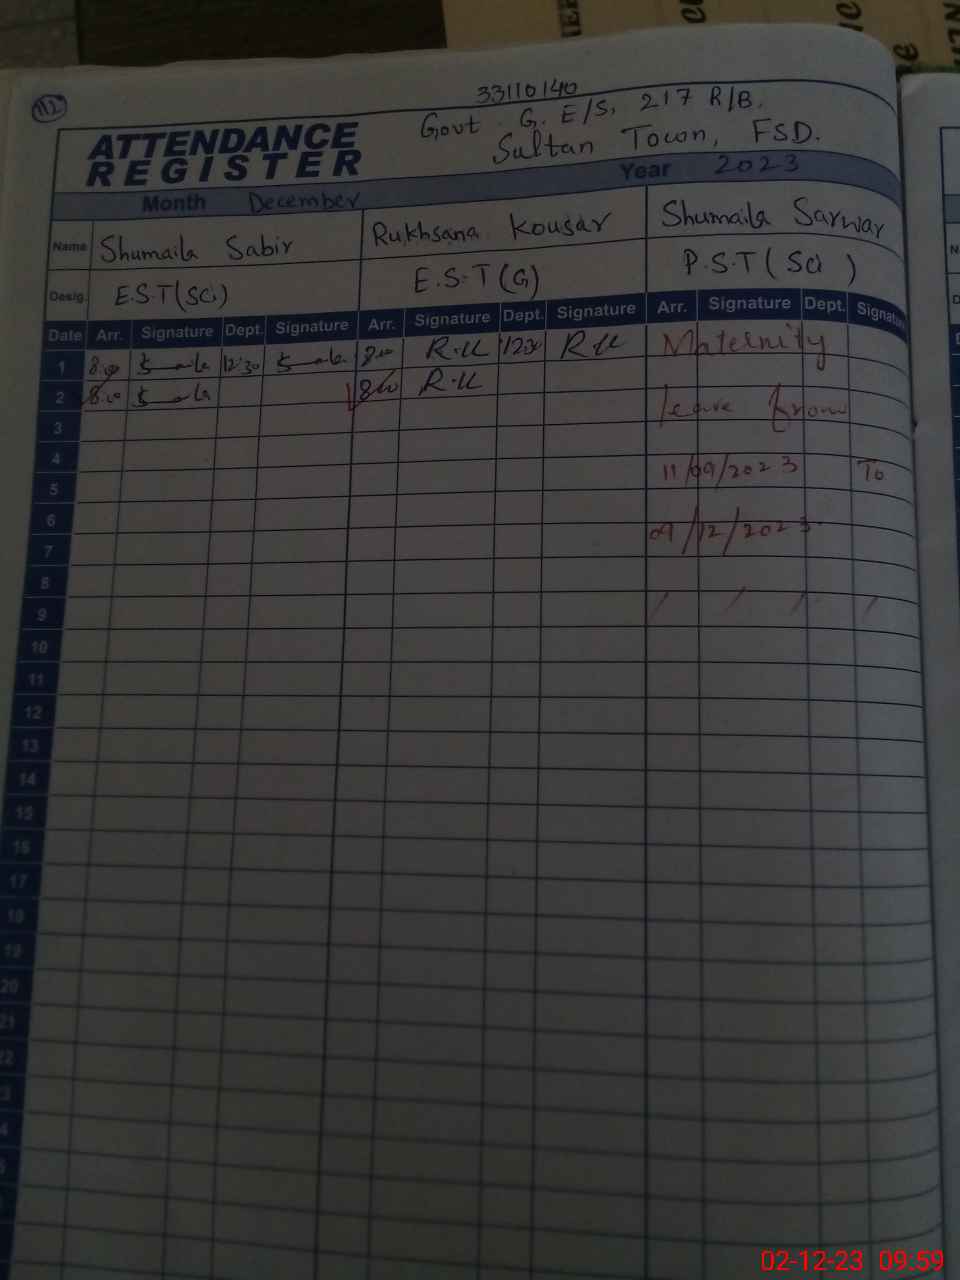 112
33110140
Govt. G. E/S, 217 R/B.
Sultan Town, FSD.
ATTENDANCE
REGISTER
Month December Year 2023
Name Shumaila Sabir Rukhsana Kousar Shumaila Sarwar
Desig. E.S.T(Sci) E.S.T(G) P.S.T(Sci)
Date Arr. Signature Dept. Signature Arr. Signature Dept. Signature Arr. Signature Dept. Signature
1 8:00 12:30 8:00 R.K 1230 R.K Maternity
2 8:00 8:00 R.K leave from
3
4
5 11/09/2023 To
6
7 09/12/2023
8
9
10
11
12
13
14
15
16
17
18
19
20
21
22
3
4
02-12-23 09:59